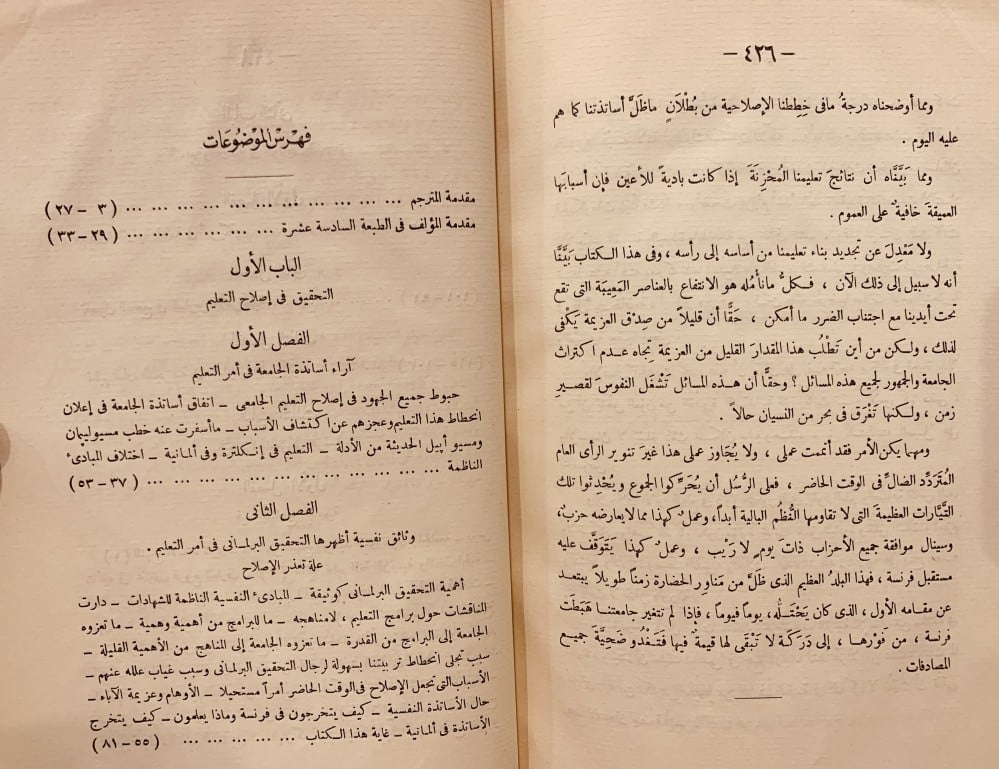 — ٤٢٦ —
ومما أوضحناه درجةُ مافى خِططنا الإصلاحية من بُطْلَانٍ ماظَلَّ أساتذتنا كما هم
عليه اليوم .
ومما بَيَّنَّاه أن نتائجَ تعليمنا المُحْزِنَةَ إذا كانت باديةً للأعين فإن أسبابَها
العميقةَ خافيةٌ على العموم .
ولا مَعْدِلَ عن تجديد بناء تعليمنا من أساسه إلى رأسه ، وفى هذا الكتاب بَيَّنَّا
أنه لاسبيل إلى ذلك الآن ، فكلُّ مانأمُله هو الانتفاع بالعناصر المَعِيبَة التى تقع
تحت أيدينا مع اجتناب الضرر ما أمكن ، حَقًّا أن قليلاً من صِدْق العزيمة يَكْفى
لذلك ، ولكن من أين تَطْلُب هذا المقدارَ القليل من العزيمة تِجاه عدم اكتراث
الجامعة والجمهور لجميع هذه المسائل ؟ وحقًّا أن هذه المسائل تَشْغَل النفوسَ لقصيرِ
زمن ، ولكنها تَغْرَق فى بحر من النسيان حالاً .
ومهما يكن الأمر فقد أتممت عملى ، ولا يُجَاوز عملى هذا غيرَ تنوير الرأى العام
المُتَرَدِّد الضالِّ فى الوقت الحاضر ، فعلى الرُّسُل أن يُحَرِّكوا الجموع ويُحْدِثوا تلك
التَّيَّارات العظيمةَ التى لا تقاومها النُّظُم البالية أبداً، وعملٌ كهذا مما لايعارضه حزبٌ،
وسينال موافقة جميع الأحزاب ذاتَ يومٍ لا رَيْب ، وعملٌ كهذا يَتَوَقَّف عليه
مستقبل فرنسة ، فهذا البلدُ العظيم الذى ظَلَّ من مَناوِر الحضارة زمناً طويلاً يبتعد
عن مقامه الأول ، الذى كان يَحْتَلُّه، يوماً فيوماً ، فإذا لم تتغير جامعتنا هَبَطَتْ
فرنسة ، من فَوْرها ، إلى دَرَكَة لا تَبْقَى لها قيمةٌ فيها فتَغْدُو ضَحِيَّةَ جميع
المصادفات .
فهرس الموضوعات
مقدمة المترجم ... ... ... ... ... ... ... ... ... ... ( ٣ — ٢٧ )
مقدمة المؤلف فى الطبعة السادسة عشرة ... ... ... ... ... ... ( ٢٩ — ٣٣ )
الباب الأول
التحقيق فى إصلاح التعليم
الفصل الأول
آراء أساتذة الجامعة فى أمر التعليم
حبوط جميع الجهود فى إصلاح التعليم الجامعى — اتفاق أساتذة الجامعة فى إعلان
انحطاط هذا التعليم وعجزهم عن اكتشاف الأسباب — ماأسفرت عنه خطب مسيوليمان
ومسيو أپيل الحديثة من الأدلة — التعليم فى إنكلترة وفى ألمانية — اختلاف المبادئ
الناظمة ... ... ... ... ... ... ... ... ... ... ... ( ٣٧ — ٥٣ )
الفصل الثانى
وثائق نفسية أظهرها التحقيق البرلمانى فى أمر التعليم .
علة تعذر الإصلاح
أهمية التحقيق البرلمانى كوثيقة — المبادئ النفسية الناظمة للشهادات — دارت
المناقشات حول برامج التعليم ، لامناهجه — ما للبرامج من أهمية وهمية — ما تعزوه
الجامعة إلى البرامج من القدرة — ما تعزوه الجامعة إلى المناهج من الأهمية القليلة —
سبب تجلى انحطاط تربيتنا بسهولة لرجال التحقيق البرلمانى وسبب غياب علله عنهم —
الأسباب التى تجعل الإصلاح فى الوقت الحاضر أمراً مستحيلا — الأوهام وعزيمة الآباء —
حال الأساتذة النفسية — كيف يتخرجون فى فرنسة وماذا يعلمون — كيف يتخرج
الأساتذة فى ألمانية — غاية هذا الكتاب ... ... ... ... ... ... ( ٥٥ — ٨١ )